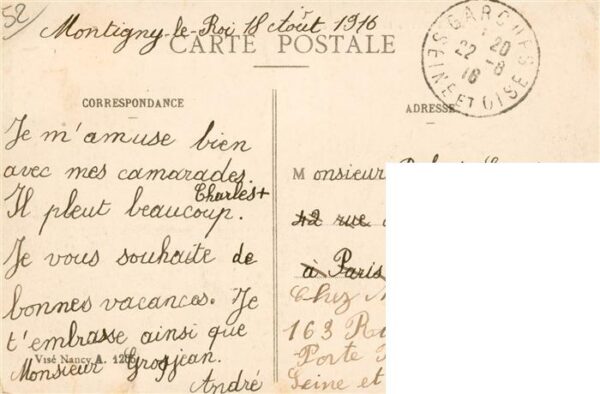 52
Montigny-le-Roi 18 Août 1916
CARTE POSTALE
GARCHES
SEINE ET OISE
20
22 -8
16
CORRESPONDANCE
ADRESSE
Je m'amuse bien
avec mes camarades.
Charles +
Il pleut beaucoup.
Je vous souhaite de
bonnes vacances. Je
t'embrasse ainsi que
Monsieur Grosjean.
André
Visé Nancy A.
Monsieur
42 rue
à Paris
Chez
163
Porte
Seine et